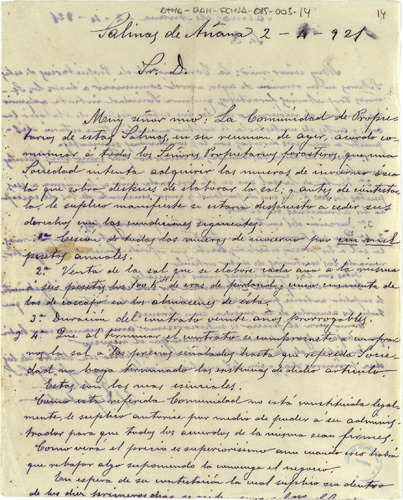 ATHA-DAH-FCHSA-015-003-14
14
Salinas de Añana 2-4-921
Sr. D.
Muy señor mio: La Comunidad de Propie-
tarios de estas Salinas, en su reunión de ayer, acordó co-
municar a todos los Señores Propietarios forasteros, que una
Sociedad intenta adquirir las mueras de invierno o sea
la que sobre después de elaborar la sal; y antes de contestar
le suplico manifieste si estara dispuesto a ceder sus
derechos con las condiciones siguientes.
1ª Cesión de todas las mueras de invierno por un mil
pesetas anuales.
2ª Venta de la sal que se elabore cada año a la misma
a seis pesetas los 100 k. de eras de y cinco cincuenta
los de en los almacenes de esta.
3ª Duración del contrato veinte años prorrogables.
y 4. Que al terminar el contrato se compromete a comprar-
nos la sal a los precios señalados hasta que referida Socie-
dad no haya terminado las existencias de dicho artículo.
Estas son las mas esenciales.
Como esta referida Comunidad no está constituida legal-
mente le suplico autorice por medio de poder a su adminis-
trador para que todos los acuerdos de la misma sean firmes.
Como verá el precio es superiorisimo aun cuando creo habrá
que rebajar algo suponiendo la convenga el negocio.
En espera de su contestación la cual suplico sea dentro
de los diez primeros días